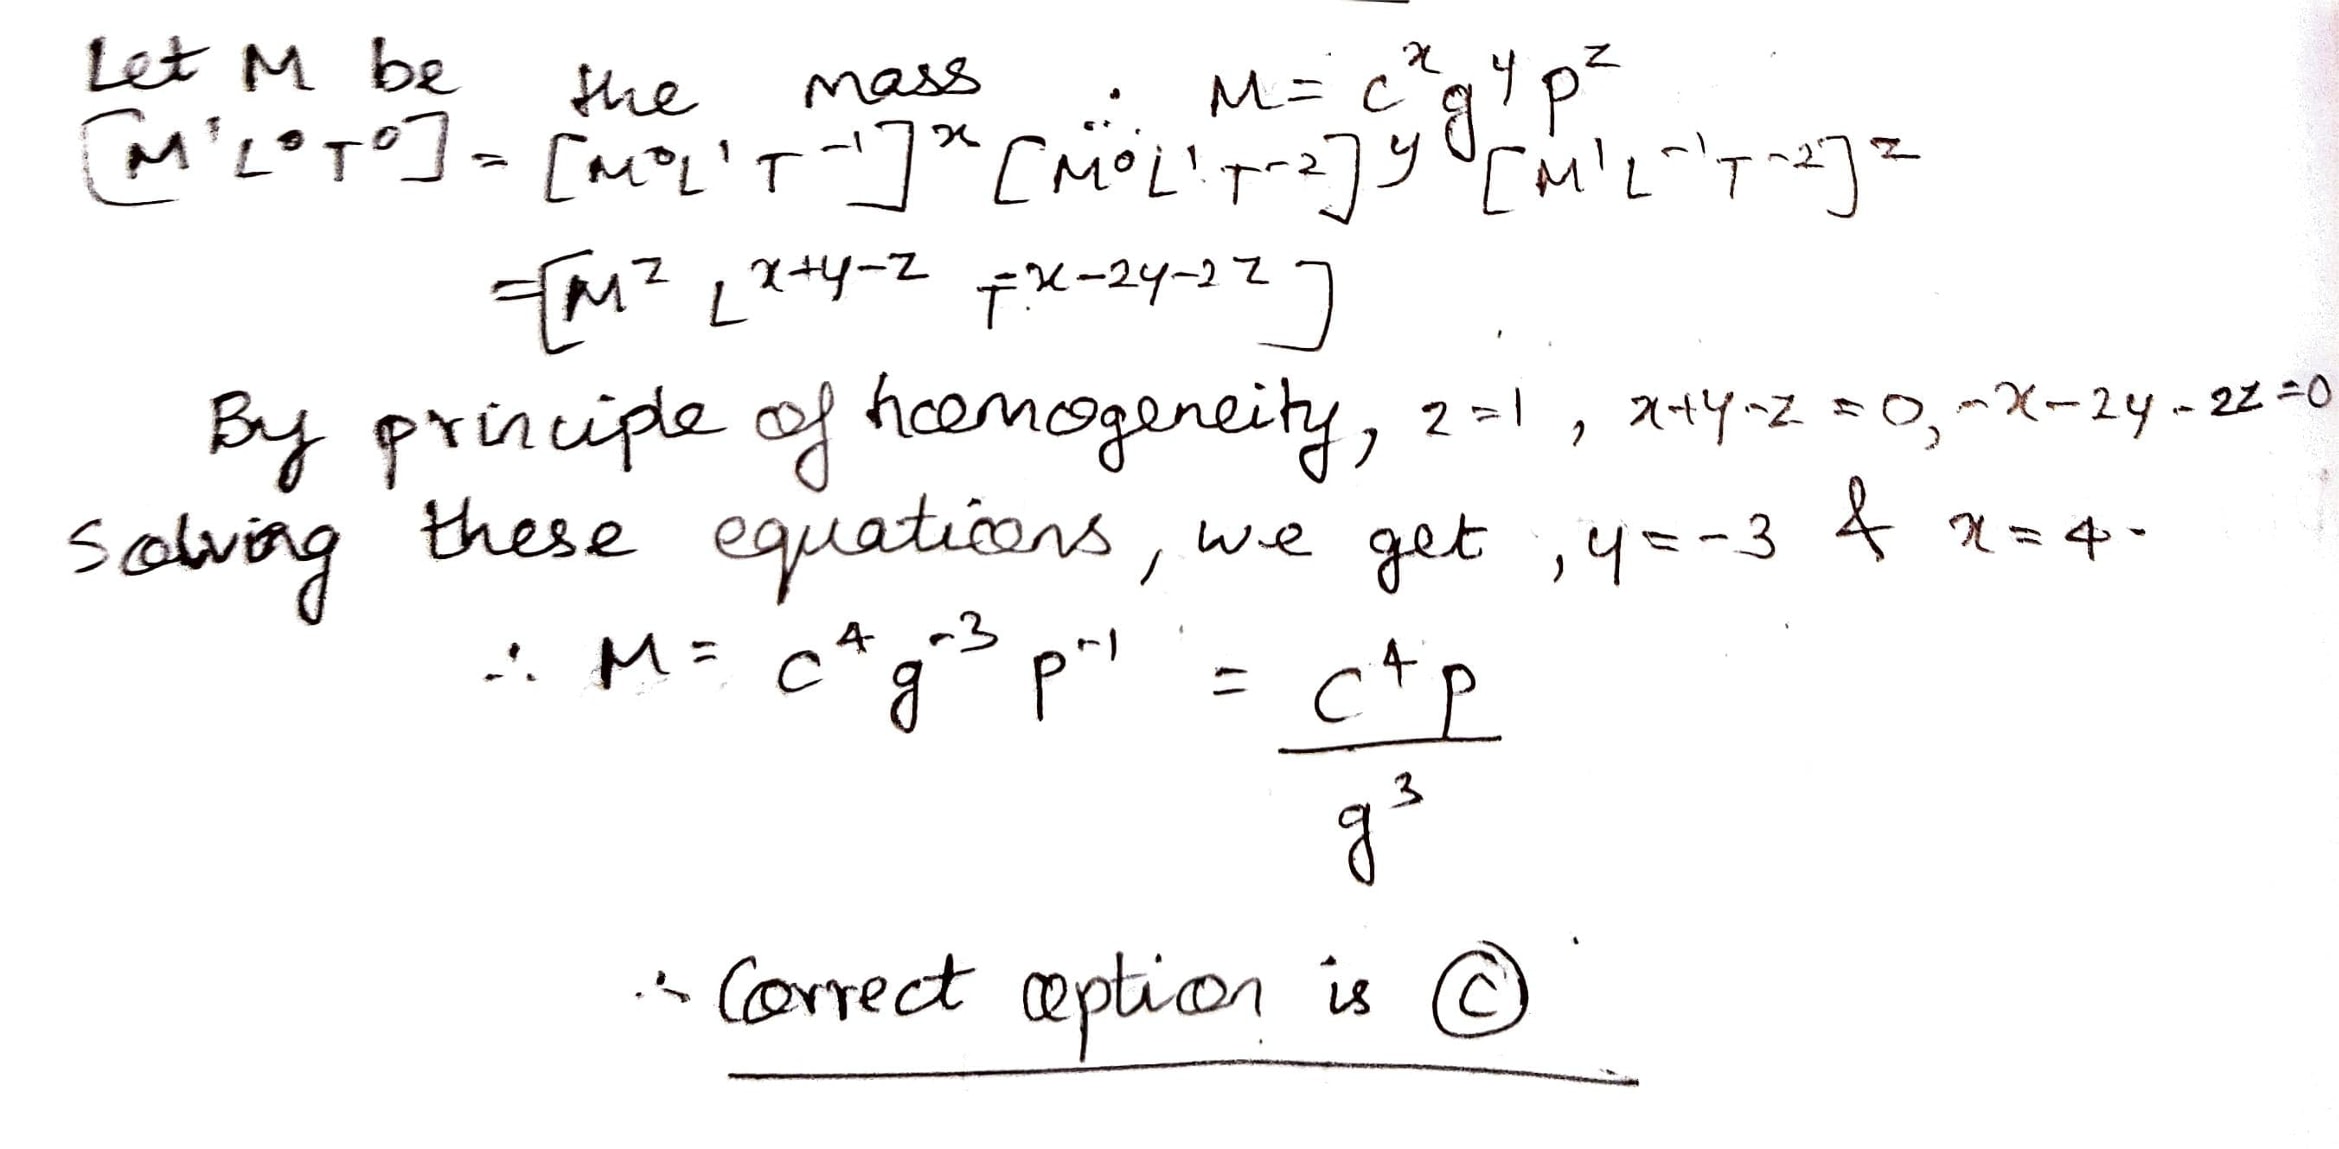 Let M be the mass ∴ M = c^x g^y p^z
[M¹L⁰T⁰] = [M⁰L¹T⁻¹]^x [M⁰L¹T⁻²]^y [M¹L⁻¹T⁻²]^z
= [M^z L^x+y-z T^-x-2y-2z]
By principle of homogeneity, z=1, x+y-z=0, -x-2y-2z=0
solving these equations, we get, y=-3 & x=4.
∴ M = c⁴ g⁻³ p⁻¹ = c⁴p
g³
∴ Correct option is Ⓒ